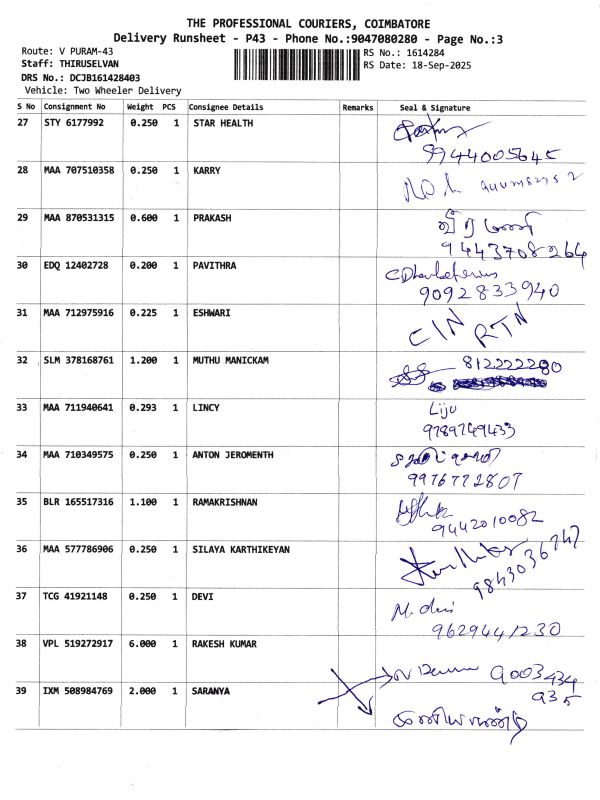 THE PROFESSIONAL COURIERS, COIMBATORE
Delivery Runsheet - P43 - Phone No.:9047080280 - Page No.:3
Route: V PURAM-43
Staff: THIRUSELVAN
DRS No.: DCJB161428403
Vehicle: Two Wheeler Delivery
RS No.: 1614284
RS Date: 18-Sep-2025
S No Consignment No Weight PCS Consignee Details Remarks Seal & Signature
27 STY 6177992 0.250 1 STAR HEALTH
9944005645
28 MAA 707510358 0.250 1 KARRY
29 MAA 870531315 0.600 1 PRAKASH
9443708264
30 EDQ 12402728 0.200 1 PAVITHRA
9092833940
31 MAA 712975916 0.225 1 ESHWARI
CIN RTN
32 SLM 378168761 1.200 1 MUTHU MANICKAM
33 MAA 711940641 0.293 1 LINCY
Liju
9789749433
34 MAA 710349575 0.250 1 ANTON JEROMENTH
9976772807
35 BLR 165517316 1.100 1 RAMAKRISHNAN
9442010082
36 MAA 577786906 0.250 1 SILAYA KARTHIKEYAN
9843036747
37 TCG 41921148 0.250 1 DEVI
M. devi
9629441230
38 VPL 519272917 6.000 1 RAKESH KUMAR
9003434
935
39 IXM 508984769 2.000 1 SARANYA